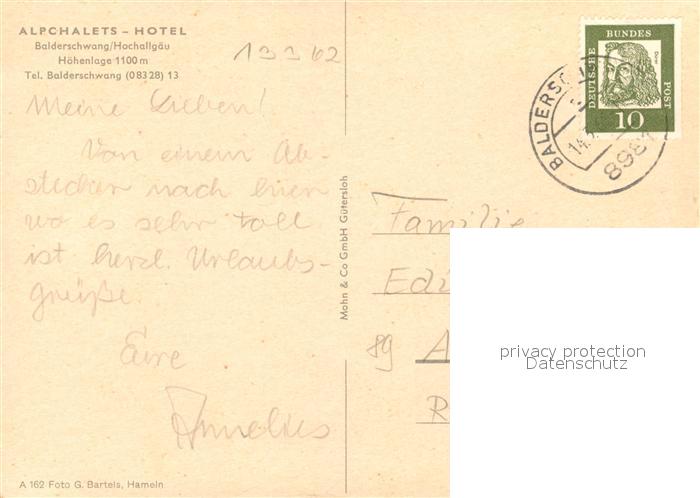 ALPCHALETS – HOTEL
Balderschwang/Hochallgäu
Höhenlage 1100 m
Tel. Balderschwang (08328) 13
13 3 62
Meine Lieben!
Von einem Ab-
stecher nach hier
wo es sehr toll
ist herzl. Urlaubs-
grüße.
Eure
A 162 Foto G. Bartels, Hameln
Mohn & Co GmbH Gütersloh
DEUTSCHE BUNDES POST
Dürer
10
BALDERSC
14.
8968
Familie
Edi
89 A
R
privacy protection
Datenschutz